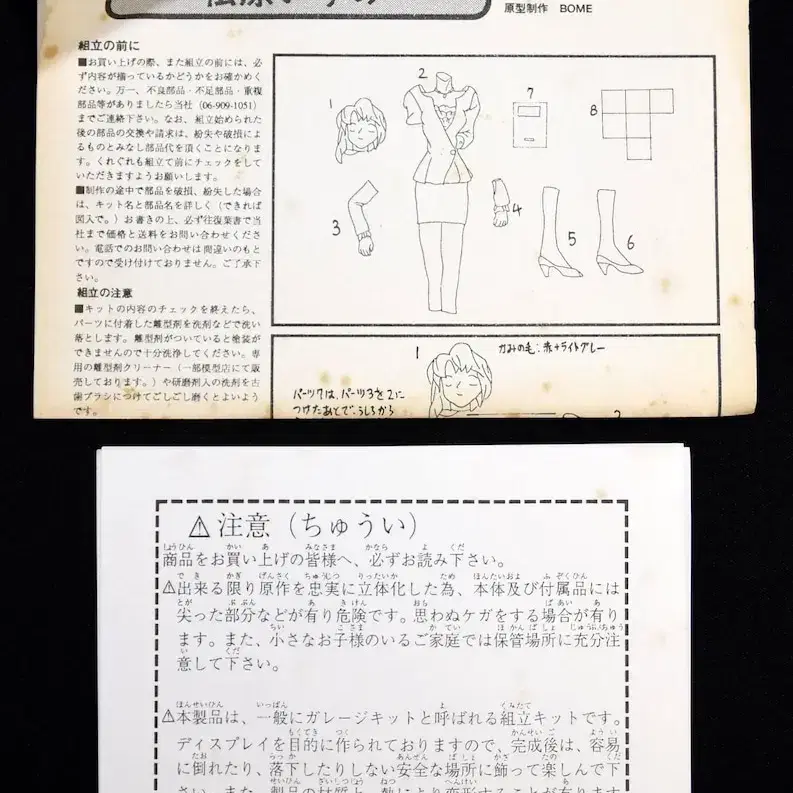 原型制作 BOME
組立の前に
■お買い上げの際、また組立の前には、必
ず内容が揃っているかどうかをお確かめく
ださい。万一、不良部品・不足部品・重複
部品等がありましたら当社（06-909-1051）
までご連絡下さい。なお、組立始められた
後の部品の交換や請求は、紛失や破損によ
るものとみなし部品代を頂くことになりま
す。くれぐれも組立て前にチェックをして
いただきますようお願いします。
■制作の途中で部品を破損、紛失した場合
は、キット名と部品名を詳しく（できれば
図入で。）お書きの上、必ず往復葉書で当
社まで価格と送料をお問い合わせくださ
い。電話でのお問い合わせは間違いのもと
ですので受け付けておりません。ご了承下
さい。
組立の注意
■キットの内容のチェックを終えたら、
パーツに付着した離型剤を洗剤などで洗い
落とします。離型剤がついていると塗装が
できませんので十分洗浄してください。専
用の離型剤クリーナー（一部模型店にて販
売しております。）や研磨剤入の洗剤を古
歯ブラシにつけてごしごし磨くとよいよう
です。
1
2
3
4
5
6
7
8
1
かみの毛：赤+ライトグレー
パーツ7は、パーツ3を2に
つけたあとで、うしろから
⚠注意（ちゅうい）
しょうひん かい あ みなさま かなら よ くだ
商品をお買い上げの皆様へ、必ずお読み下さい。
でき かぎ げんさく ちゅうじつ りったいか ため ほんたいおよ ふぞくひん
⚠出来る限り原作を忠実に立体化した為、本体及び付属品には
とが ぶぶん あ きけん おも ばあい あ
尖った部分などが有り危険です。思わぬケガをする場合が有り
ちい こさま かてい ほかんばしょ じゅうぶんちゅう
ます。また、小さなお子様のいるご家庭では保管場所に充分注
い くだ
意して下さい。
ほんせいひん いっぱん よ くみたて
⚠本製品は、一般にガレージキットと呼ばれる組立キットです。
もくてき つく かんせいご ようい
ディスプレイを目的に作られておりますので、完成後は、容易
たお らっか あんぜん ばしょ かざ たの くだ
に倒れたり、落下したりしない安全な場所に飾って楽しんで下
せいひん ざいしつじょう ねつ へんけい
さい。また、製品の材質上、熱により変形することが有ります